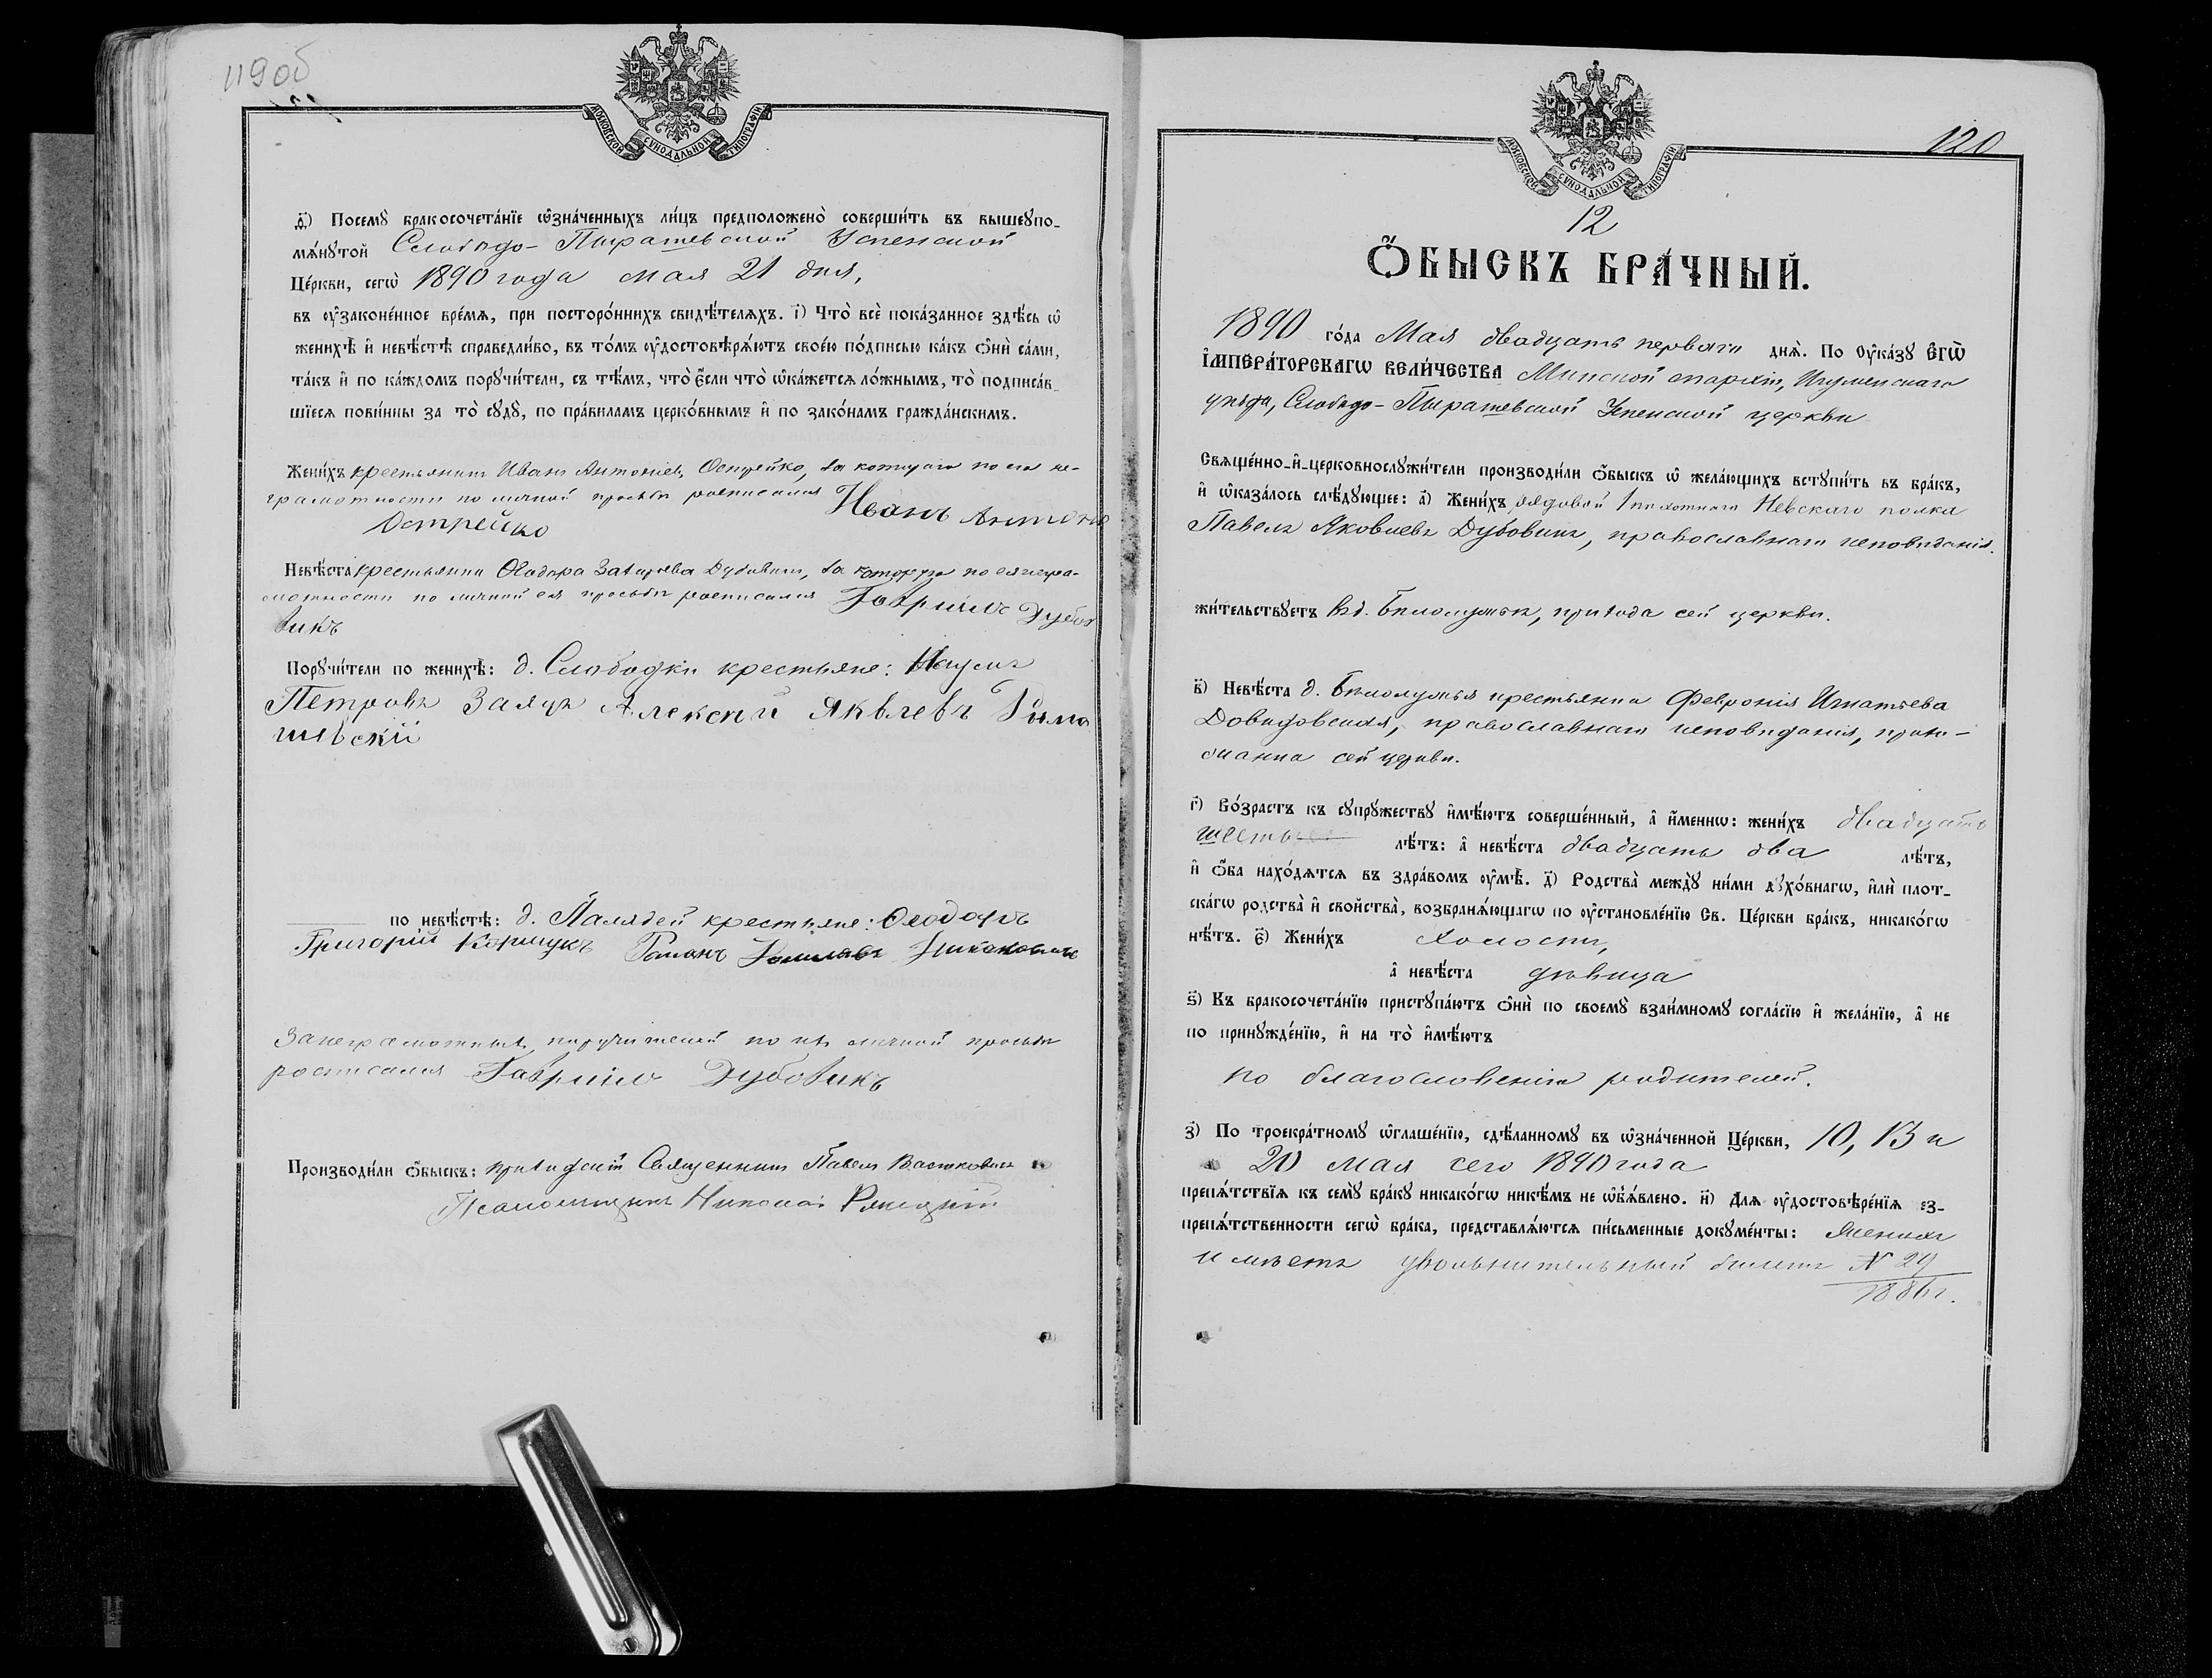 119об
МОСКОВСКОЙ СУНОДАЛЬНОЙ ТИПОГРАФІИ
д҃) Посемꙋ̀ бракосочета́нїе ѡ҆зна́ченныхъ ли́цъ предположено̀ соверши́ть въ вышеꙋпо-
мѧ́нꙋтой Слободо-Пырашевской Успенской
Це́ркви, сегѡ̀ 1890 года мая 21 дня,
въ ᲂу҆законе́нное вре́мѧ, при посторо́ннихъ свидѣ́телѧхъ. і҃) Что̀ всѐ пока́занное здѣ́сь ѡ҆
женихѣ̀ и҆ невѣ́стѣ справедли́во, въ то́мъ ᲂу҆достовѣрѧ́ютъ свое́ю по́дписью ка́къ ѻ҆нѝ са́ми,
та́къ и҆ по ка́ждомъ порꙋчи́тели, съ тѣ́мъ, что̀ є҆́сли что̀ ѡ҆ка́жетсѧ ло́жнымъ, то̀ подписа́в-
шїесѧ пови́нны за то̀ сꙋдꙋ̀, по пра́виламъ церко́внымъ и҆ по зако́намъ гражда́нскимъ.
Жени́хъ крестьянинъ Иванъ Антоніевъ Острейко, за котораго по его не-
грамотности по личной просьбѣ росписался Иванъ
Острейко
Невѣ́ста крестьянка Ѳеодора Дубовикъ, за которую по ея негра-
мотности по личной ея просьбѣ росписался Гавріилъ Дубо
викъ
Порꙋчи́тели по женихѣ̀: д. Слободки крестьяне: Наумъ
Петровъ Заяцъ Алексѣй Яквлевъ
шевскій
по невѣ́стѣ: д. крестьяне: Ѳеодоръ
Григорій Коршукъ Романъ
За неграмотныхъ поручителей по ихъ личной просьбѣ
росписался Гавріилъ Дубовикъ
Производи́ли ѻ҆́быскъ: приходскій Священникъ Павелъ
Псаломщикъ Николай
120
МОСКОВСКОЙ СУНОДАЛЬНОЙ ТИПОГРАФІИ
12
Ѻ҆́БЫСКЪ БРА́ЧНЫЙ.
1890 го́да Мая двадцать перваго днѧ̀. По ᲂу҆ка́зꙋ є҆гѡ̀
і҆мпера́торскагѡ вели́чества Минской епархіи, Игуменскаго
уѣзда, Слободо-Пырашевской Успенской церкви
Свѧще́нно-и҆-церковнослꙋжи́тели производи́ли ѻ҆́быскъ ѡ҆ жела́ющихъ встꙋпи́ть въ бра́къ,
и҆ ѡ҆каза́лось слѣ́дꙋющее: а҃) Жени́хъ рядовой 1 пѣхотнаго Невскаго полка
Павелъ Яковлевъ Дубовикъ, православнаго исповѣданія.
жи́тельствꙋетъ въ д. прихода сей церкви.
в҃) Невѣ́ста д. крестьянка Февронія Игнатьева
Довидовская, православнаго исповѣданія, прихо-
жанка сей церкви.
г҃) Во́зрастъ къ сꙋпрꙋ́жествꙋ и҆мѣ́ютъ соверше́нный, а҆ и҆́меннѡ: жени́хъ двадцать
шесть лѣ́тъ: а҆ невѣ́ста двадцать два лѣ́тъ,
и҆ ѻ҆́ба нахо́дѧтсѧ въ здра́вомъ ᲂу҆мѣ̀. д҃) Родства̀ междꙋ̀ ни́ми дꙋхо́внагѡ, и҆лѝ плот-
ска́гѡ родства̀ и҆ свойства̀, возбранѧ́ющагѡ по ᲂу҆становле́нїю Св. Це́ркви бра́къ, никако́гѡ
нѣ́тъ. є҃) Жени́хъ холостъ,
а҆ невѣ́ста дѣвица
ѕ҃) Къ бракосочета́нїю пристꙋпа́ютъ ѻ҆нѝ по своемꙋ̀ взаи́мномꙋ согла́сїю и҆ жела́нїю, а҆ не
по принꙋжде́нїю, и҆ на то̀ и҆мѣ́ютъ
по благословенію родителей.
з҃) По троекра́тномꙋ ѡ҆глаше́нїю, сдѣ́ланномꙋ въ ѡ҆зна́ченной Це́ркви, 10, 13 и
20 мая сего 1890 года
препѧ́тствїѧ къ семꙋ̀ бра́кꙋ никако́гѡ никѣ́мъ не ѡ҆бъѧ́влено. и҃) Длѧ ᲂу҆достовѣре́нїѧ ез-
препѧ́тственности сегѡ̀ бра́ка, представлѧ́ютсѧ пи́сьменные докꙋме́нты: Женихъ
имѣетъ увольнительный билетъ № 29
1886 г.